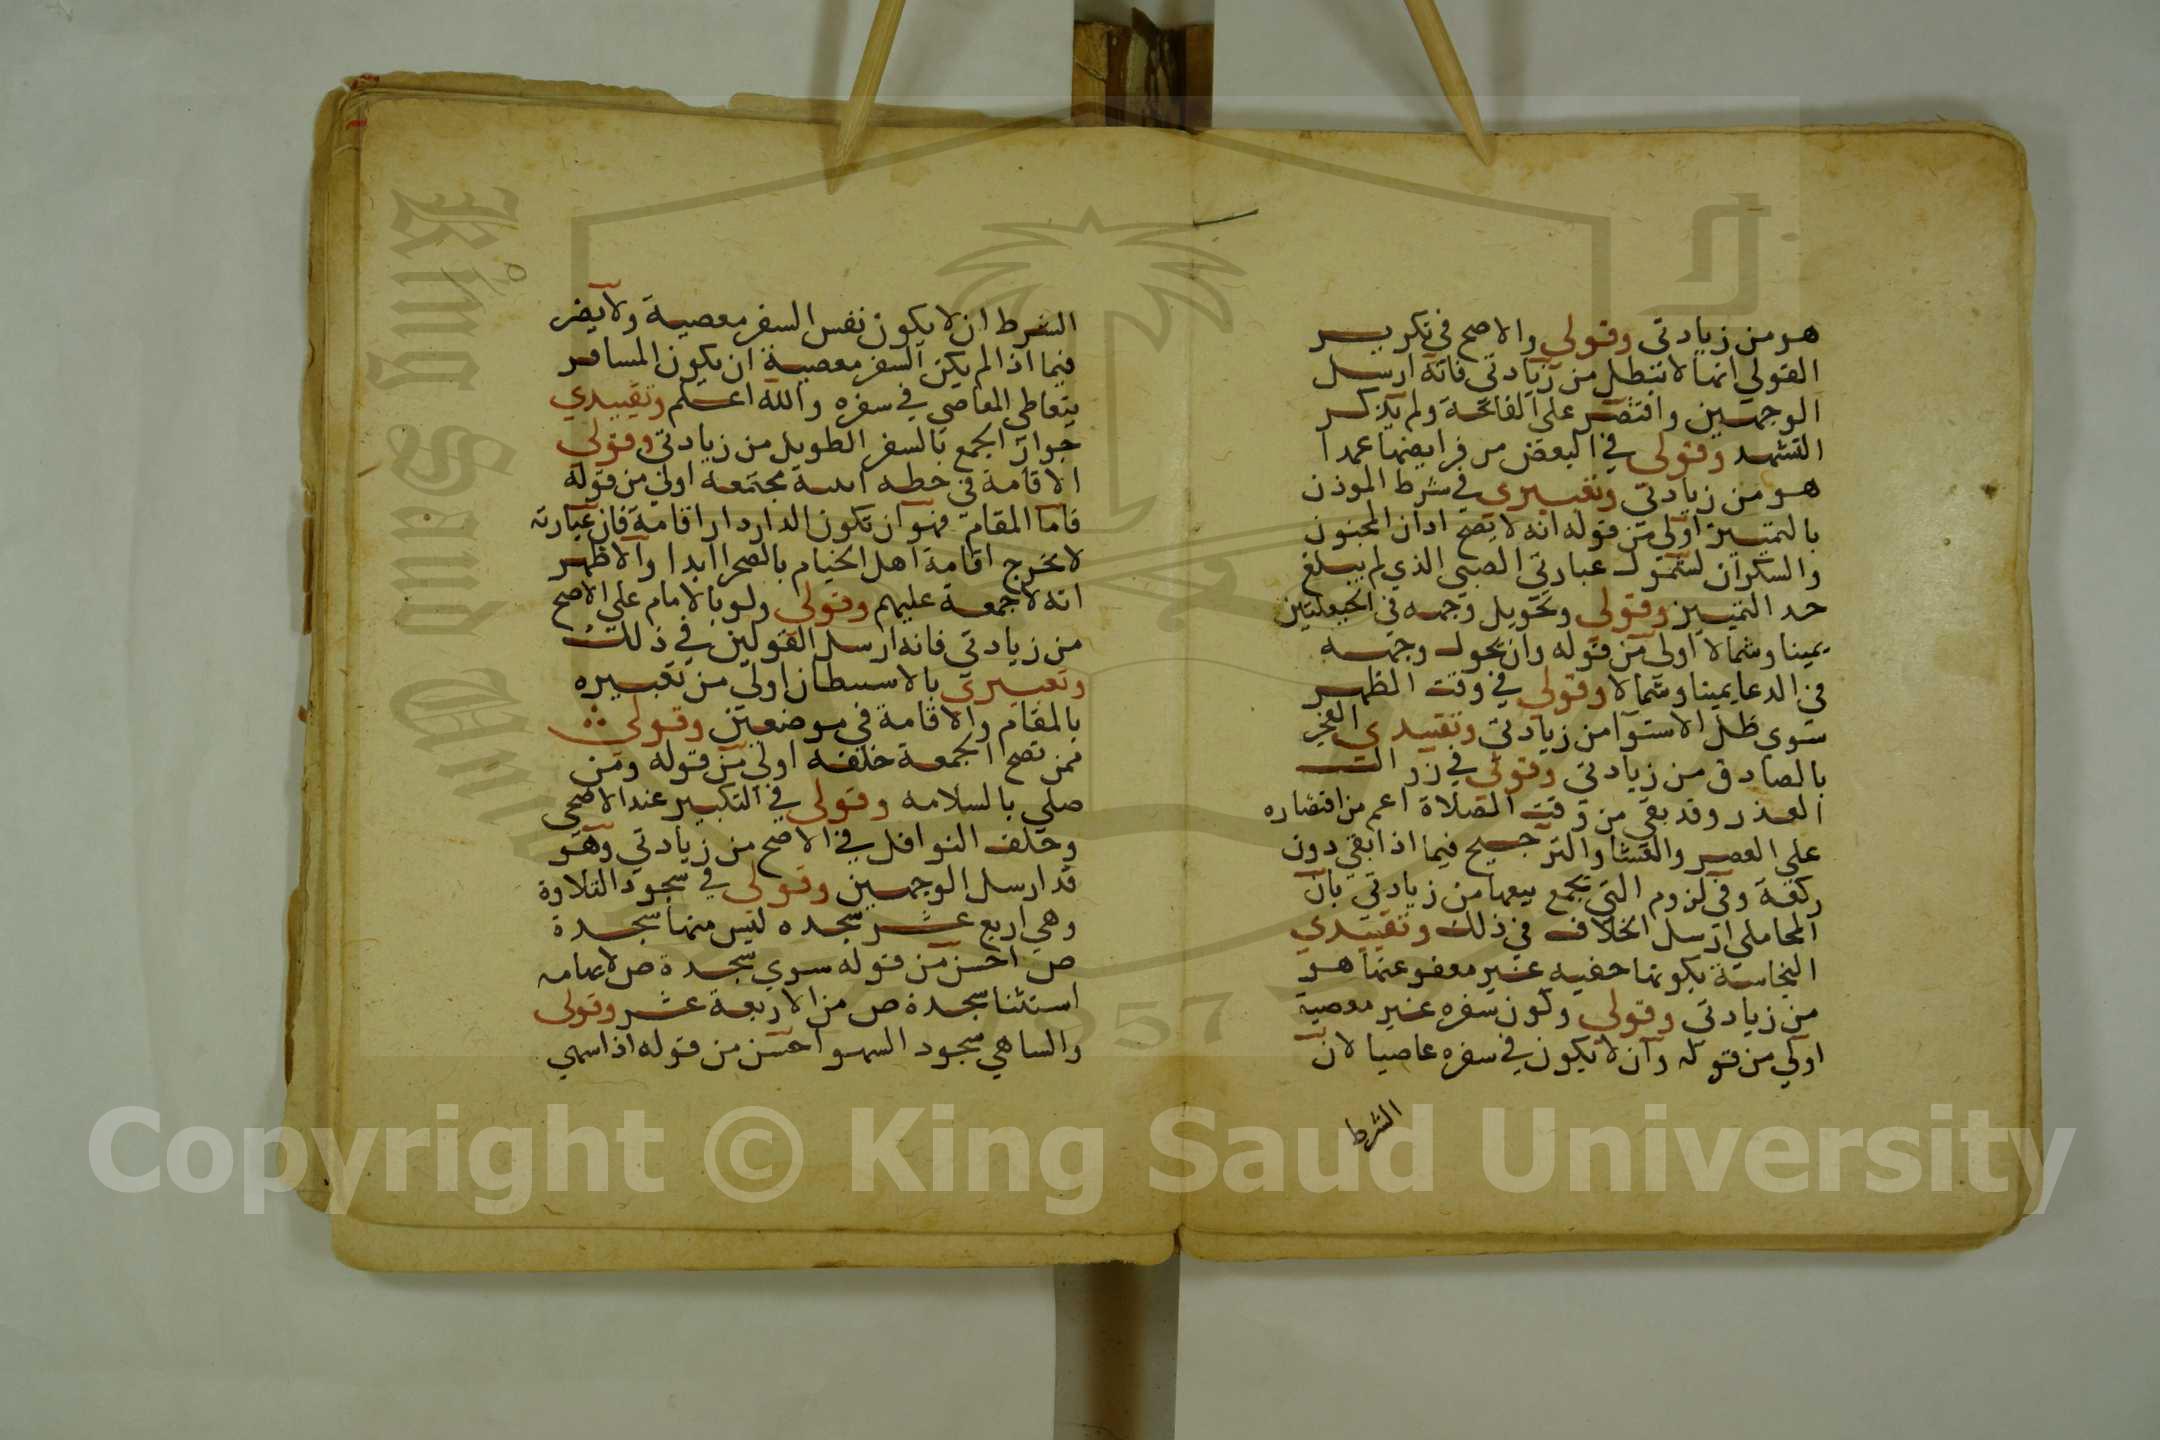 هو من زيادتي وقولي والاصح في تكرير
القولي انها لا تبطل من زيادتي فانه ارسل
الوجهين واقتصر على الفاتحة ولم يذكر
التشهد وقولي في البعض من فرايضها عمدا
هو من زيادتي وتعبيري في شرط الموذن
بالتمييز اولي من قوله انه لا يصح اذان المجنون
والسكران لشمول عبارتي الصبي الذي لم يبلغ
حد التمييز وقولي وتحويل وجهه في الحيعلتين
يمينا وشمالا اولى من قوله وان يحول وجهه
في الدعا يمينا وشمالا وقولي في وقت الظهر
سوى ظل الاستوا من زيادتي وتقييدي الفجر
بالصادق من زيادتي وقولي في زوال
العذر وقد بقي من وقت الصلاة اعم من اقتصاره
علي العصر والعشا والترجيح فيما اذا بقي دون
ركعة وفي لزوم التي تجمع معها من زيادتي بان
المحاملي ارسل الخلاف في ذلك وتقييدي
النجاسة بكونها خفيه غير معفو عنها هو
من زيادتي وقولي وكون سفره غير معصية
اولي من قوله وان لا يكون في سفره عاصيا لان
الشرط
الشرط ان لا يكون نفس السفر معصية ولا يضر
فيما اذا لم يكن السفر معصية ان يكون المسافر
يتعاطى المعاصي في سفره والله اعلم وتقييدي
جواز الجمع بالسفر الطويل من زيادتي وقولي
الاقامة في خطه ابنية مجتمعة اولي من قوله
فاما المقام فهو ان تكون الدار دار اقامة فان عبارته
لا تخرج اقامة اهل الخيام بالصحرا ابدا والاظهر
انه لا جمعة عليهم وقولي ولو بالامام علي الاصح
من زيادتي فانه ارسل القولين في ذلك
وتعبيري بالاستيطان اولي من تعبيره
بالمقام والاقامة في موضعين وقولي
فمن تصح الجمعة خلفه اولي من قوله ومن
صلي بالسلامه وقولي في التكبير عند الاضحي
وخلف النوافل في الاصح من زيادتي وهو
قد ارسل الوجهين وقولي في سجود التلاوة
وهي اربع عشر سجده ليس منها سجدة
ص احسن من قوله سوي سجدة ص لايهامه
استثنا سجدة ص من الاربعة عشر وقولى
والساهي سجود السهو احسن من قوله اذا سهي
Copyright © King Saud University